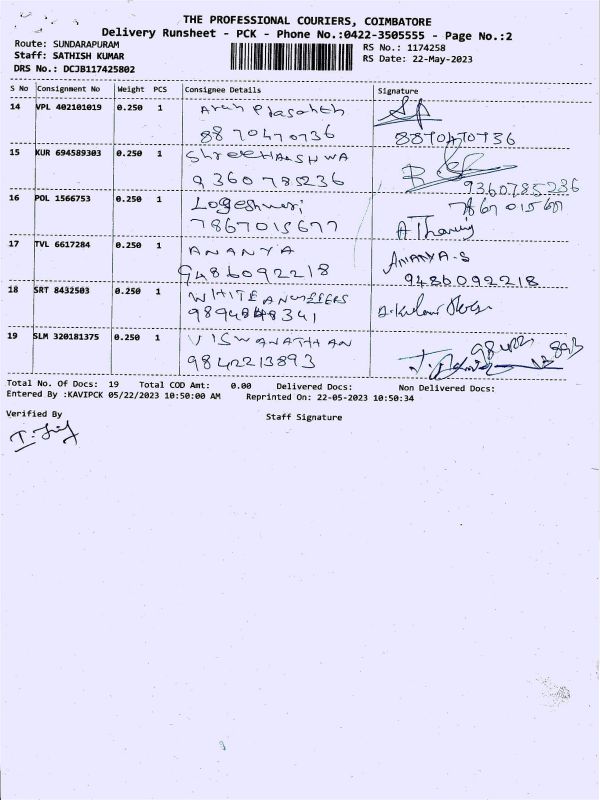 THE PROFESSIONAL COURIERS, COIMBATORE
Delivery Runsheet - PCK - Phone No.:0422-3505555 - Page No.:2
Route: SUNDARAPURAM
RS No.: 1174258
Staff: SATHISH KUMAR
RS Date: 22-May-2023
DRS No.: DCJB117425802
S No Consignment No Weight PCS Consignee Details Signature
14 VPL 402101019 0.250 1
8870470736 8870470736
15 KUR 694589303 0.250 1
9360785236 9360785236
16 POL 1566753 0.250 1 Logeshwari 7867015677
7867015677
17 TVL 6617284 0.250 1 ANANYA ANANYA.S
9486092218 9486092218
18 SRT 8432503 0.250 1
19 SLM 320181375 0.250 1 VISWANATHAN
9842213893
Total No. Of Docs: 19 Total COD Amt: 0.00 Delivered Docs: Non Delivered Docs:
Entered By :KAVIPCK 05/22/2023 10:50:00 AM Reprinted On: 22-05-2023 10:50:34
Verified By
Staff Signature